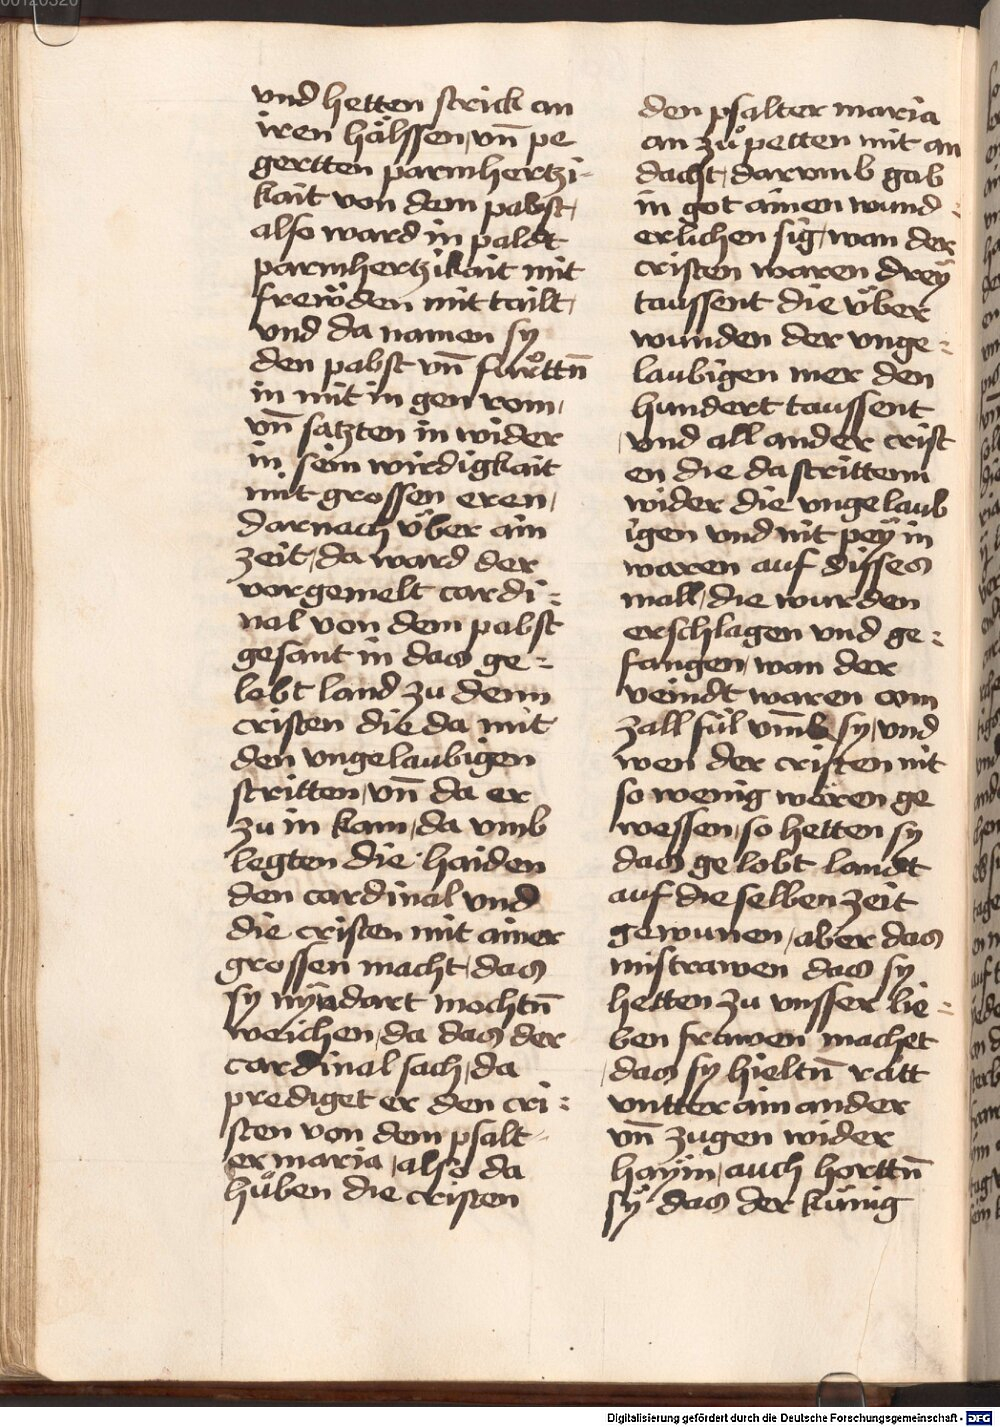 vnd hetten strick an
iren hälssen, vn̄ pe
gertten parmhertzi-
kait von dem pabst,
also ward in paldt
parmhertzikait mit
frewͦden mit tailt,
vnd da namen sy
den pabst vn̄ fuͦrttn̄
in mit in gen rom,
vn̄ satzten in wider
in sein wirdigkait
mit grossen eren,
darnach über ain
zeit, da ward der
vorgemelt cardi=
nal von dem pabst
gesant in das ge=
lobt land zu denn
cristen die da mit
den vngelaubigen
stritten, vn̄ da er
zu in kam, da vmb
legten die haiden
den cardinal vnd
die cristen mit ainer
grossen macht, das
sy nÿndart mochtn̄
weichen, da das der
cardinal sach, da
prediget er den cri=
sten von dem psalt-
er maria, also da
hüben die cristen
den psalter maria
an zuͦ petten mit an
dacht, darvmb gab
in got ainen wund=
erlichen sig, wan der
cristen waren dreÿ
taussent die über
wunden der vnge=
laubigen mer den
hundert taussent
vnd all ander crist
en die da strittenn
wider die vngelaub
igen vnd nit peÿ in
waren auf disses
mall, die wurden
erschlagen vnd ge=
fangen, wan der
veindt waren com
zall fül vm̄b sy, vnd
wen der cristen nit
so wenig wären ge
wessen, so hetten sy
das ge lobt landt
auf die selben zeit
gewunen, aber das
mistrawen das sy
hetten zu vnsser lie=
ben frawen machet
das sy hieltn̄ ratt
vntter ain ander
vn̄ zugen wider
haÿm, auch horttn̄
sÿ das der künig
00120320
Digitalisierung gefördert durch die Deutsche Forschungsgemeinschaft - DFG